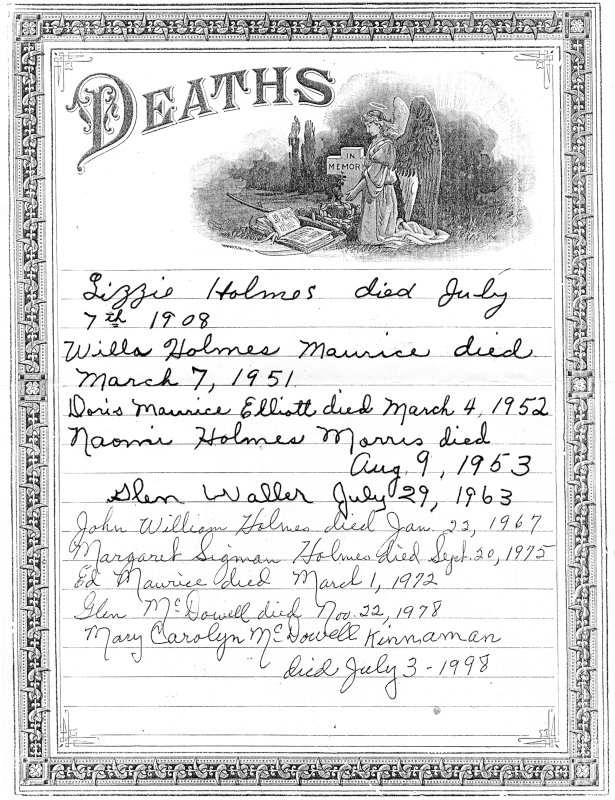 DEATHS
IN
MEMORY
Lizzie Holmes died July
7th 1908
Willa Holmes Maurice died
March 7, 1951
Doris Maurice Elliott died March 4, 1952
Naomi Holmes Morris died
Aug. 9, 1953
Glen Waller July 29, 1963
John William Holmes died Jan. 22, 1967
Margaret Sigman Holmes died Sept. 20, 1975
Ed Maurice died March 1, 1972
Glen McDowell died Nov. 22, 1978
Mary Carolyn McDowell Kinnaman
died July 3-1998